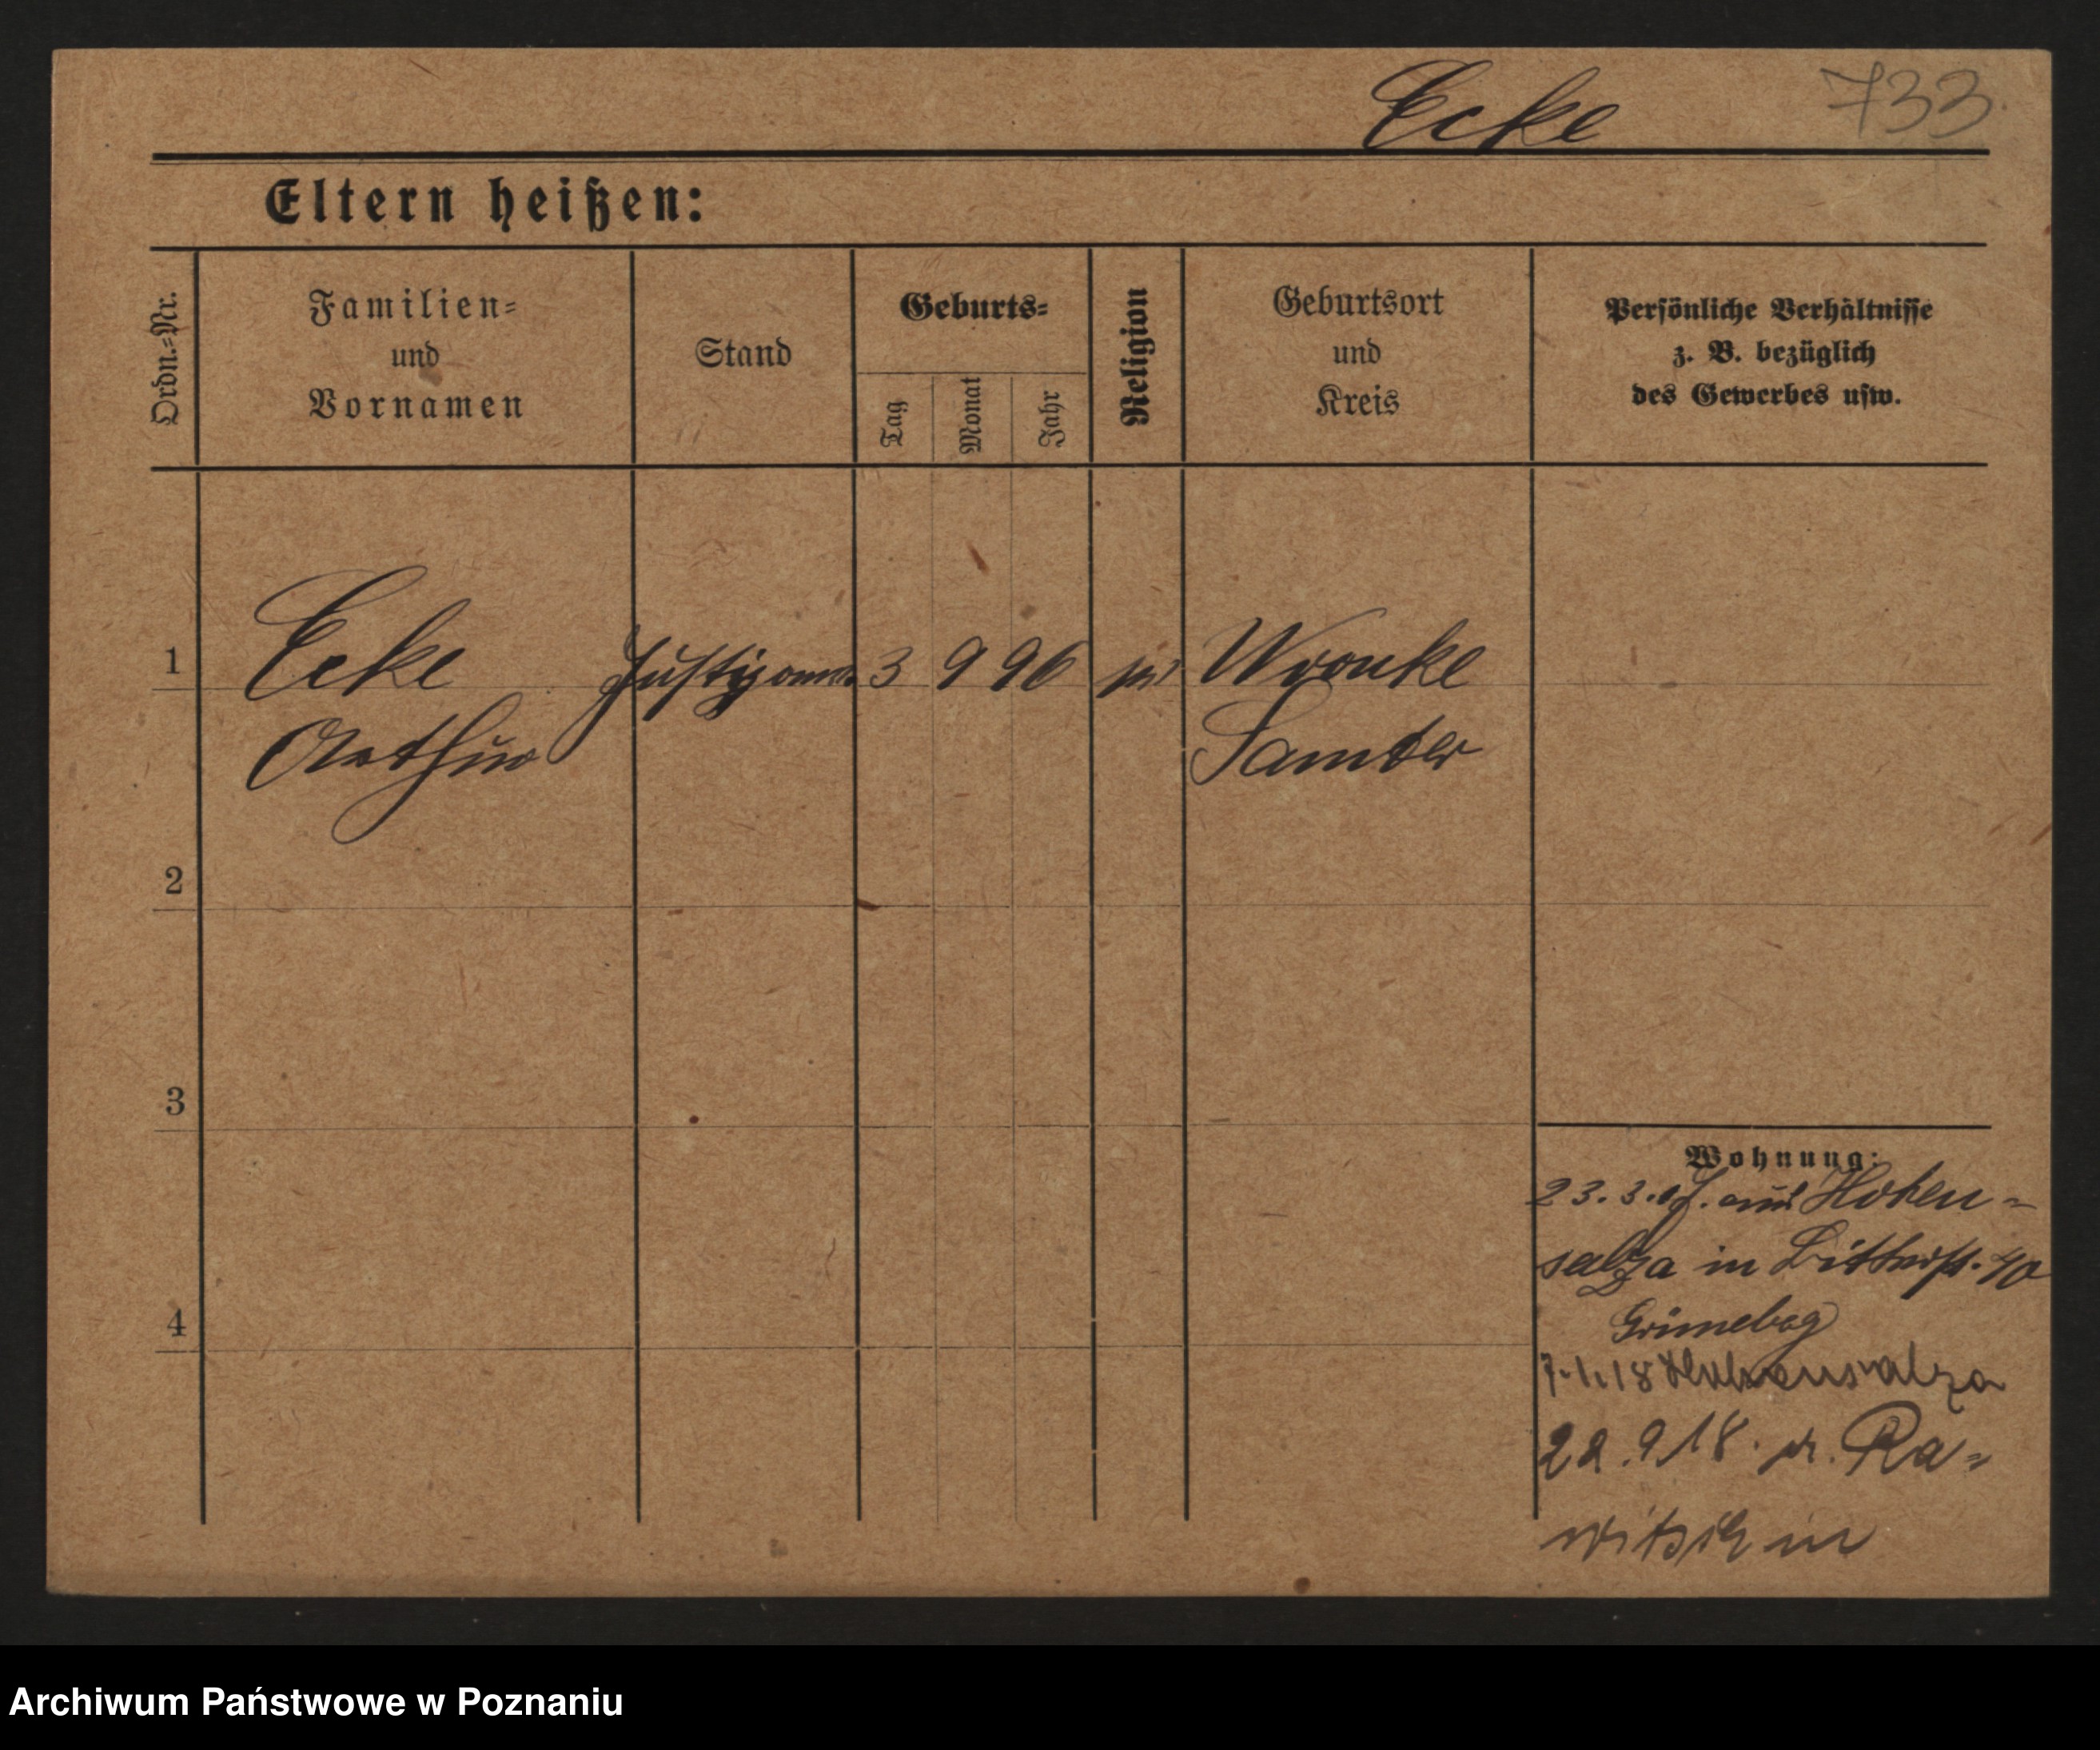 Ecke 733
Eltern heißen:
Ordn.=Nr.
Familien=
und
Vornamen
Stand
Geburts=
Tag
Monat
Jahr
Religion
Geburtsort
und
Kreis
Persönliche Verhältnisse
z. B. bezüglich
des Gewerbes usw.
1 Ecke 3 9 96 Wronke
Arthur Samter
2
3
4
Wohnung:
23.3. aus Hohen=
salza in 40
7.1.18 Hohensalza
9 18. Ra=
witsch in
Archiwum Państwowe w Poznaniu